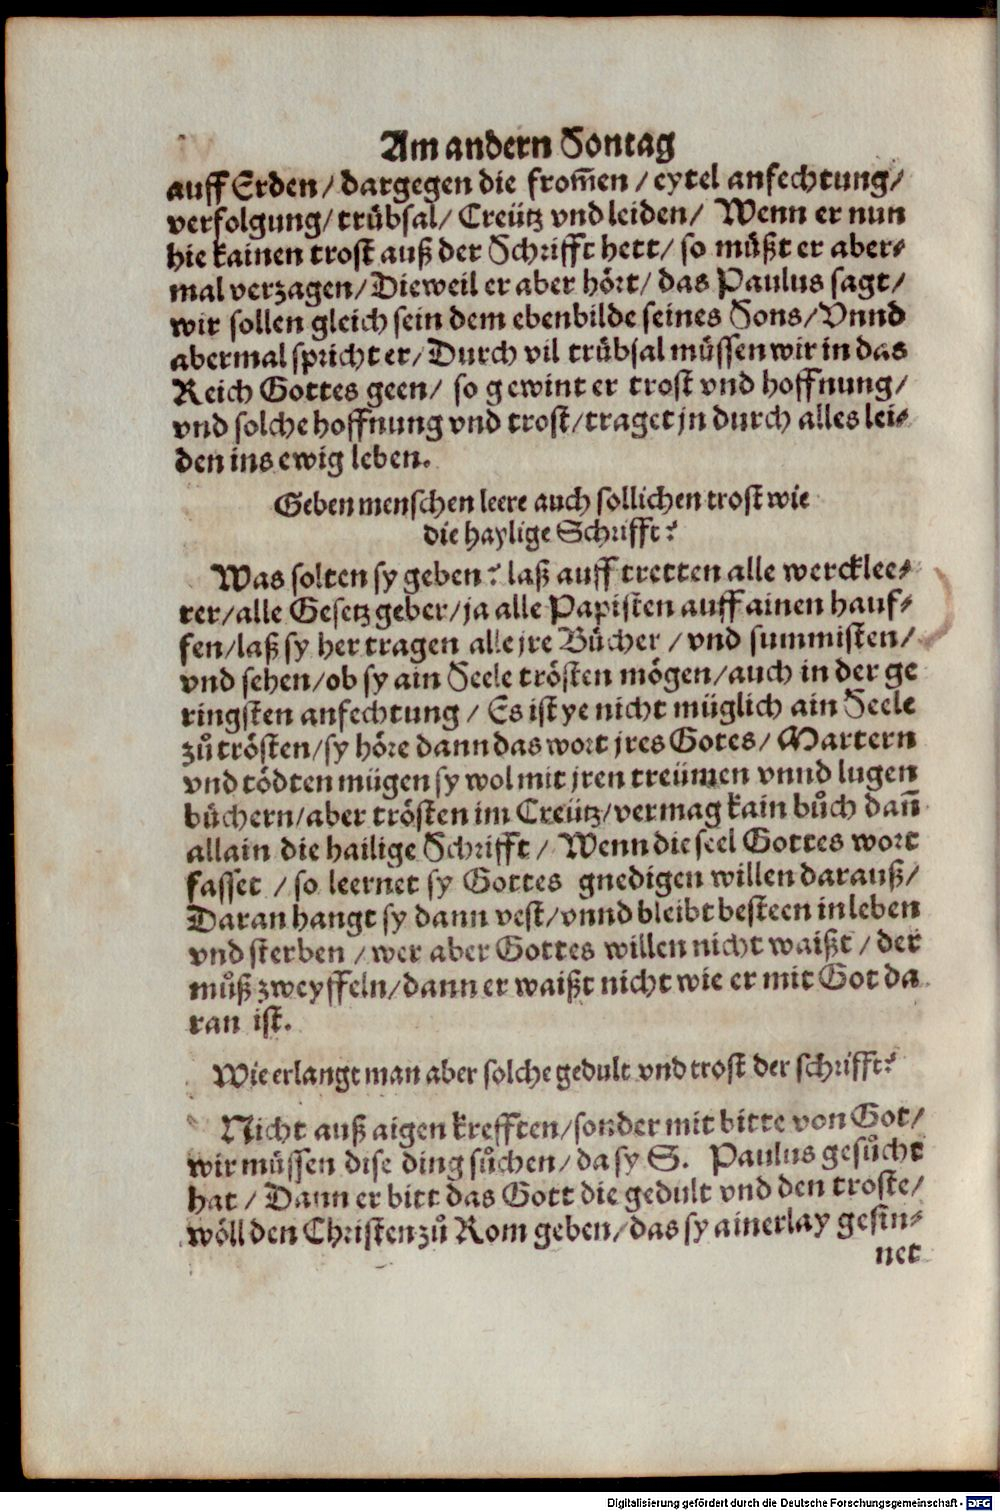 Am andern Sontag
auff Erden / dargegen die from̃en / eytel anfechtung /
verfolgung / trübsal / Creütz vnd leiden / Wenn er nun
hie kainen trost auß der Schrifft hett / so müßt er aber-
mal verzagen / Dieweil er aber hört / das Paulus sagt /
wir sollen gleich sein dem ebenbilde seines Sons / Vnnd
abermal spricht er / Durch vil trübsal müssen wir in das
Reich Gottes geen / so gewint er trost vnd hoffnung /
vnd solche hoffnung vnd trost / traget jn durch alles lei-
den ins ewig leben.
Geben menschen leere auch sollichen trost wie
die haylige Schrifft?
Was solten sy geben? laß auff tretten alle wercklee-
rer / alle Gesetz geber / ja alle Papisten auff ainen hauf-
fen / laß sy her tragen alle jre Bücher / vnd summisten /
vnd sehen / ob sy ain Seele trösten mögen / auch in der ge
ringsten anfechtung / Es ist ye nicht müglich ain Seele
zů trösten / sy höre dann das wort jres Gotes / Martern
vnd tödten mügen sy wol mit jren treümen vnnd lugen
büchern / aber trösten im Creütz / vermag kain bůch dañ
allain die hailige Schrifft / Wenn die seel Gottes wort
fasset / so leernet sy Gottes gnedigen willen darauß /
Daran hangt sy dann vest / vnnd bleibt besteen in leben
vnd sterben / wer aber Gottes willen nicht waißt / der
můß zweyffeln / dann er waißt nicht wie er mit Got da
ran ist.
Wie erlangt man aber solche gedult vnd trost der schrifft?
Nicht auß aigen krefften / sonder mit bitte von Got /
wir müssen dise ding sůchen / da sy S. Paulus gesůcht
hat / Dann er bitt das Gott die gedult vnd den troste /
wöll den Christen zů Rom geben / das sy ainerlay gesin-
net
Digitalisierung gefördert durch die Deutsche Forschungsgemeinschaft - DFG